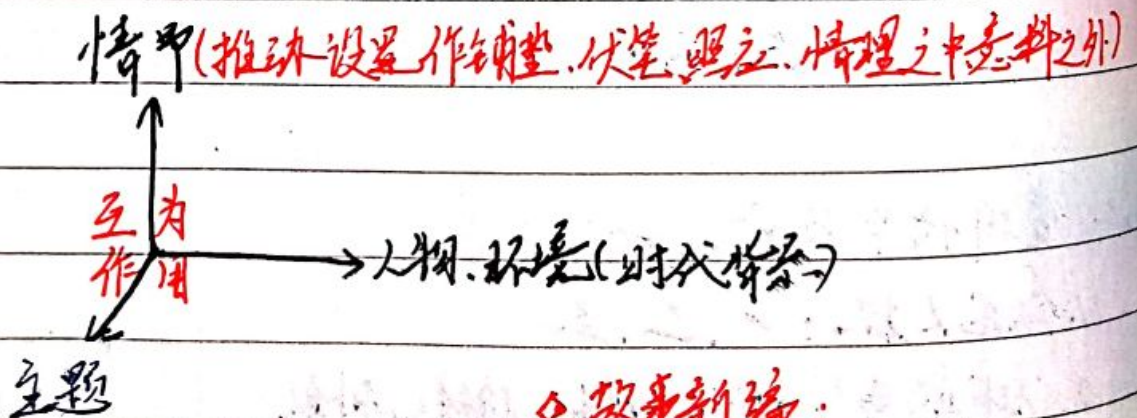 情节(推动、设置、作铺垫、伏笔、照应、情理之中意料之外)
互为
作用
人物、环境(时代背景)
主题
故事新编.